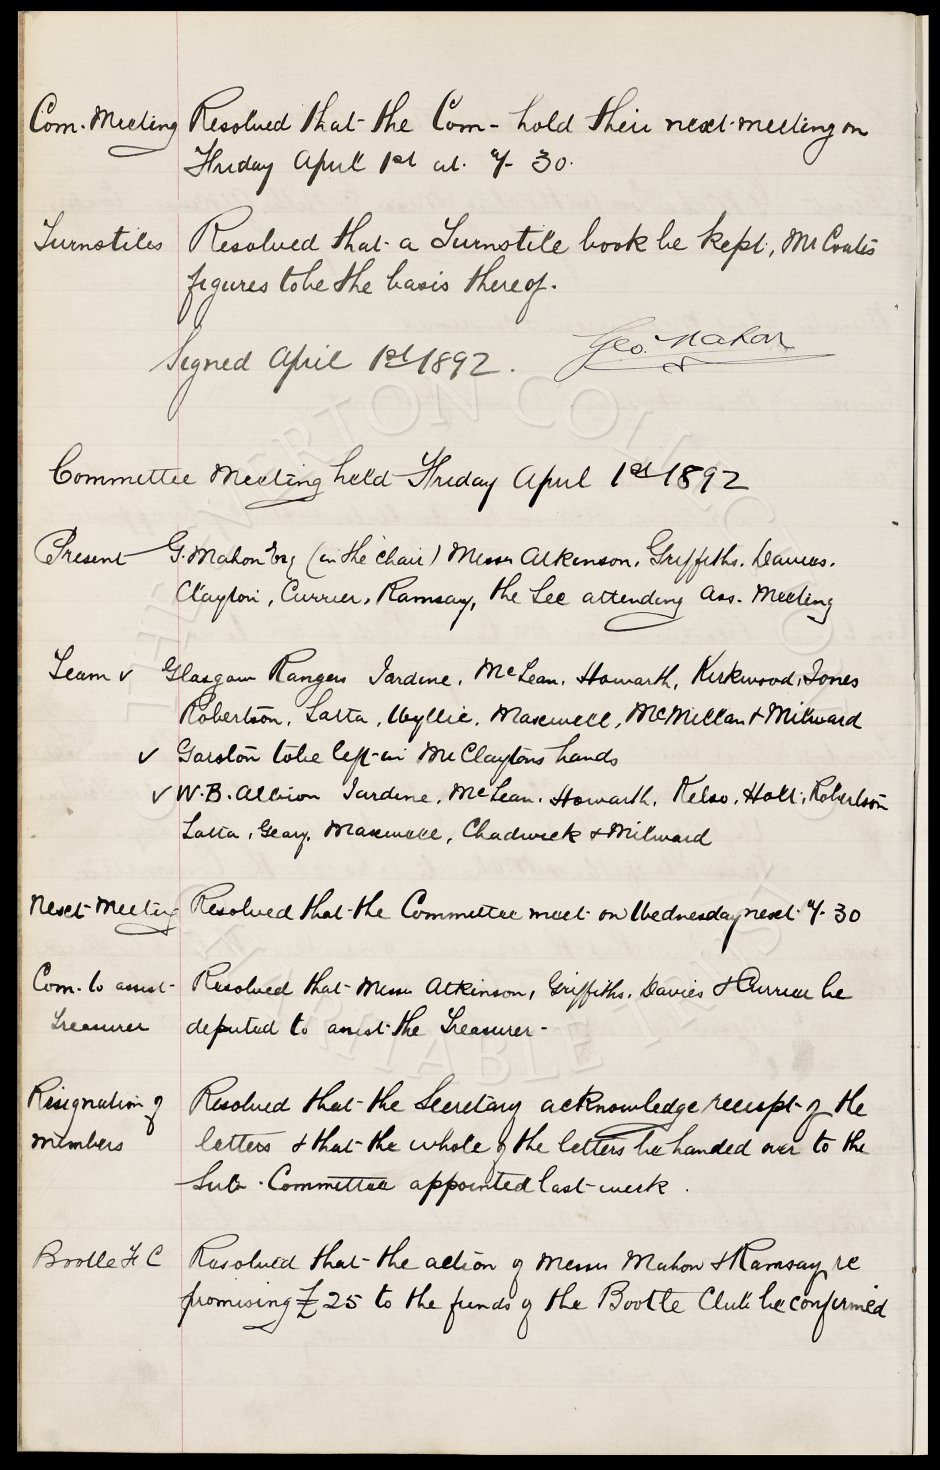 Com. Meeting Resolved that the Com - hold their next meeting on
Friday April 1st at 7-30.
Turnstiles Resolved that a Turnstile book be kept, Mr Coates
figures to be the basis thereof.
Signed April 1st 1892. Geo. Mahon
Committee Meeting held Friday April 1st 1892
Present G. Mahon Esq (in the chair) Messrs Atkinson, Griffiths, Davies.
Clayton, Currier, Ramsay, the Sec attending Ass. Meeting
Team v Glasgow Rangers Jardine, McLean, Howarth, Kirkwood, Jones
Robertson, Latta, Wyllie, Maxwell, McMillan & Milward
v Garston to be left in Mr Claytons hands
v W.B. Albion Jardine, McLean, Howarth, Kelso, Holt, Robertson
Latta, Geary, Maxwell, Chadwick & Milward
Next Meeting Resolved that the Committee meet on Wednesday next 7-30
Com. to assist Resolved that Messrs Atkinson, Griffiths, Davies & Currier be
Treasurer deputed to assist the Treasurer -
Resignation of Resolved that the Secretary acknowledge receipt of the
members letters & that the whole of the letters be handed over to the
Sub. Committee appointed last week.
Bootle F C Resolved that the action of Messrs Mahon & Ramsay re
promising £25 to the funds of the Bootle Club be confirmed
THE EVERTON COLLECTION
CHARITABLE TRUST